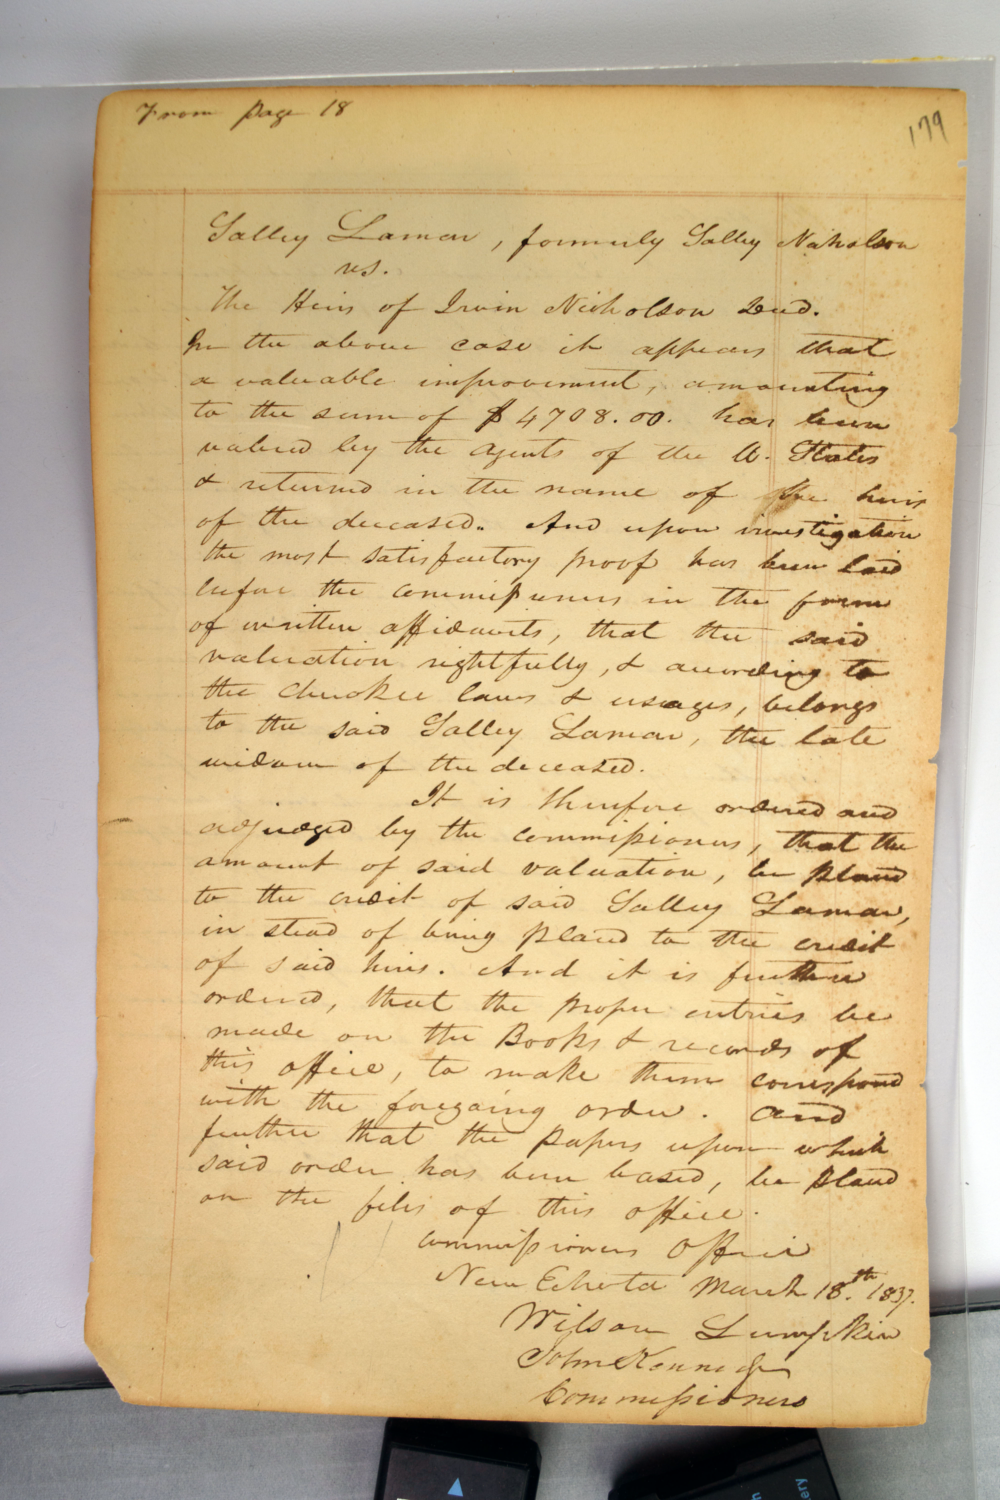 From page 18
179
Salley Lamar, formerly Salley Nicholson
vs.
The Heirs of Irvin Nicholson Decd.
In the above case it appears that
a valuable improvement, amounting
to the sum of $4708.00. has been
valued by the agents of the U. States
& returned in the name of the heirs
of the deceased. And upon investigation
the most satisfactory proof has been laid
before the commissioners in the form
of written affidavits, that the said
valuation rightfully, & according to
the Cherokee laws & usages, belongs
to the said Salley Lamar, the late
widow of the deceased.
It is therefore ordered and
adjudged by the commissioners, that the
amount of said valuation, be placed
to the credit of said Salley Lamar,
in stead of being placed to the credit
of said heirs. And it is further
ordered, that the proper entries be
made on the Books & records of
this office, to make them correspond
with the foregoing order. and
further that the papers upon which
said order has been based, be placed
on the files of this office.
Commissioners Office
New Echota March 18.th 1837.
Wilson Lumpkin
John Kennedy
Commissioners